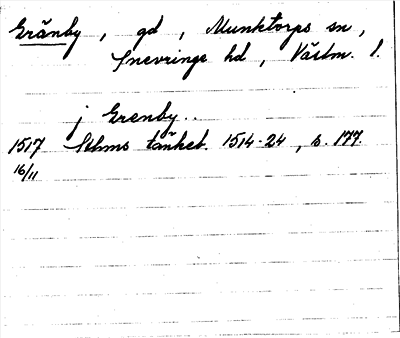 Gränby, gd, Munktorps sn,
Snevringe hd, Västm. l.
j Grenby..
1517 Sthms tänkeb. 1514-24, s. 177.
16/11